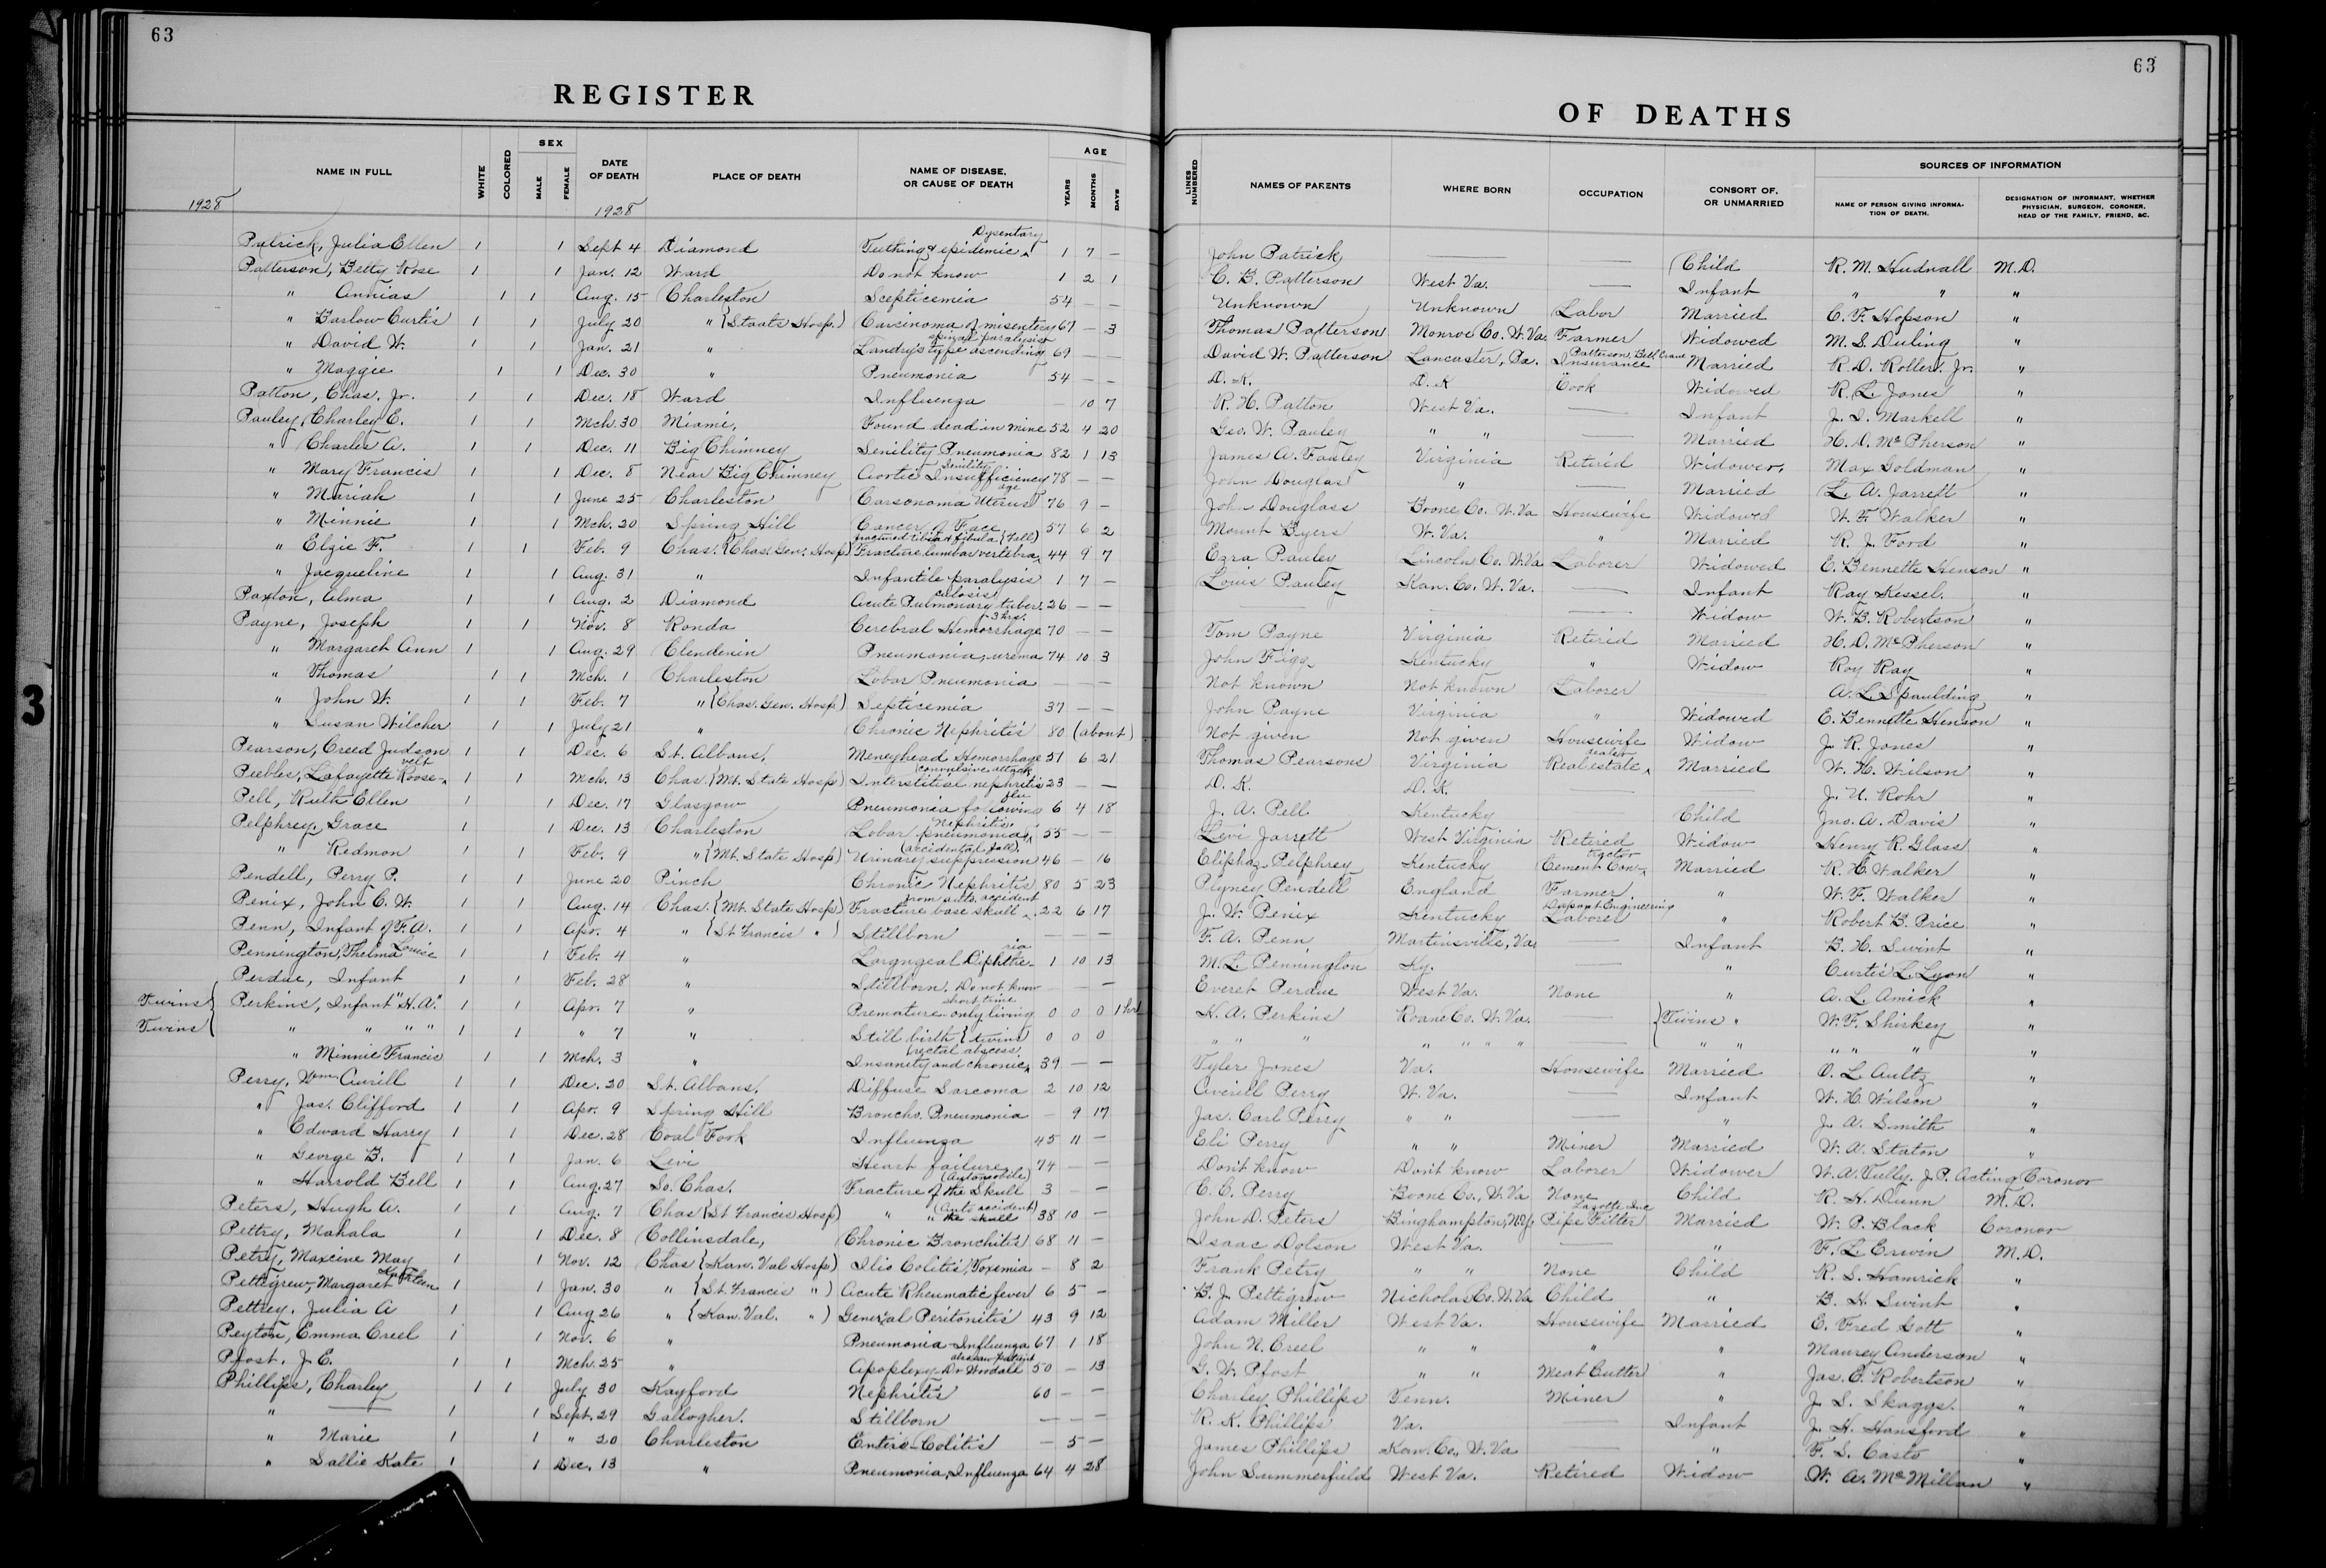 63
63
REGISTER
OF DEATHS
NAME IN FULL WHITE COLORED SEX MALE FEMALE DATE OF DEATH PLACE OF DEATH NAME OF DISEASE, OR CAUSE OF DEATH AGE YEARS MONTHS DAYS
LINES NUMBERED NAMES OF PARENTS WHERE BORN OCCUPATION CONSORT OF, OR UNMARRIED SOURCES OF INFORMATION NAME OF PERSON GIVING INFORMATION OF DEATH. DESIGNATION OF INFORMANT, WHETHER PHYSICIAN, SURGEON, CORONER, HEAD OF THE FAMILY, FRIEND, &C.
1928 1928
Patrick, Julia Ellen 1 1 Sept 4 Diamond Teething & epidemic Dysentary 1 7 — John Patrick — — Child R. M. Hudnall M.D.
Patterson, Betty Rose 1 1 Jan. 12 Ward Do not know 1 2 1 C. B. Patterson West Va. — Infant " " "
" Annias 1 1 Aug. 15 Charleston Scepticemia 54 — — Unknown Unknown Labor Married C. F. Hopson "
" Barlow Curtis 1 1 July 20 " (Staats Hosp.) Carcinoma of misentery 67 — 3 Thomas Patterson Monroe Co. W. Va. Farmer Widowed M. S. Duling "
" David W. 1 1 Jan. 21 " Landry's type ascending spinal paralysis 69 — — David W. Patterson Lancaster, Pa. Insurance Patterson, Bell, Crane Married R. D. Roller, Jr. "
" Maggie 1 1 Dec. 30 " Pneumonia 54 — — D.K. D.K Cook Widowed R. L. Jones "
Patton, Chas. Jr. 1 1 Dec. 18 Ward Influenza — 10 7 R. H. Patton West Va. — Infant J. I. Markell "
Pauley, Charley E. 1 1 Mch. 30 Miami, Found dead in mine 52 4 20 Geo. W. Pauley " " — Married H. D. McPherson "
" Charles A. 1 1 Dec. 11 Big Chimney Senility Pneumonia 82 1 13 James A. Pauley Virginia Retired Widower, Max Goldman "
" Mary Francis 1 1 Dec. 8 Near Big Chimney Aortic Insufficiency Senility 78 — — John Douglas " — Married L. A. Jarrett "
" Mariah 1 1 June 25 Charleston Carsonoma Uterus age 76 9 — John Douglass Boone Co. W. Va Housewife Widowed W. F. Walker "
" Minnie 1 1 Mch. 20 Spring Hill Cancer of Face 57 6 2 Mount Byers W. Va. " Married R. J. Ford "
" Elzie F. 1 1 Feb. 9 Chas. (Chas. Gen. Hosp) Fracture lumbar vertebra fractured tibia & fibula (Fall) 44 9 7 Ezra Pauley Lincoln Co. W. Va Laborer Widowed E. Bennette Henson "
" Jacqueline 1 1 Aug. 31 " Infantile paralysis 1 7 — Louis Pauley Kan. Co. W. Va. — Infant Ray Kessel. "
Paxton, Alma 1 1 Aug. 2 Diamond Acute Pulmonary tuber-culosis 26 — — — — Widow W. B. Robertson "
Payne, Joseph 1 1 Nov. 8 Ronda Cerebral Hemorrhage 3 hrs. 70 — — Tom Payne Virginia Retired Married H. D. McPherson "
" Margaret Ann 1 1 Aug. 29 Clendenin Pneumonia, urema 74 10 3 John Figg Kentucky " Widow Roy Ray "
" Thomas 1 1 Mch. 1 Charleston Lobar Pneumonia — — — Not known Not known Laborer — A. L. Spaulding "
" John W. 1 1 Feb. 7 " (Chas. Gen. Hosp) Septicemia 37 — — John Payne Virginia " Widowed E. Bennette Henson "
" Susan Wilcher 1 1 July 21 " Chronic Nephritis 80 (about) Not given Not given Housewife Widow J. R. Jones "
Pearson, Creed Judson 1 1 Dec. 6 St. Albans, Hemorrhage 51 6 21 Thomas Pearsons Virginia Real estate dealer Married W. H. Wilson "
Peebles, Lafayette Roose-velt 1 1 Mch. 13 Chas. (Mt. State Hosp) Interstitial nephritis (convulsive attack 23 — — D.K. D.K. — — J. U. Rohr "
Pell, Ruth Ellen 1 1 Dec. 17 Glasgow Pneumonia following flu 6 4 18 J. A. Pell Kentucky Child Jno. A. Davis "
Pelphrey, Grace 1 1 Dec. 13 Charleston Lobar pneumonia, Nephritis 55 — — Levi Jarrett West Virginia Retired Widow Henry R. Glass "
" Redmon 1 1 Feb. 9 " (Mt. State Hosp) Urinary suppression (accidental fall) 46 — 16 Eliphaz Pelphrey Kentucky Cement Con-tractor Married R. H. Walker "
Pendell, Perry P. 1 1 June 20 Pinch Chronic Nephritis 80 5 23 Plyney Pendell England Farmer " W. F. Walker "
Penix, John C. W. 1 1 Aug. 14 Chas. (Mt. State Hosp) Fracture base skull from auto. accident 22 6 17 J. W. Penix Kentucky Laborer Dupont Engineering " Robert B. Price "
Penn, Infant of F. A. 1 1 Apr. 4 " (St Francis ") Stillborn — — — F. A. Penn Martinsville, Va. — Infant B. H. Swint "
Pennington, Thelma Louise 1 1 Feb. 4 " Laryngeal Diphthe-ria 1 10 13 M. L. Pennington Ky. — " Curtis L. Lyon "
Perdue, Infant 1 1 Feb. 28 " Stillborn. Do not know — — — Everet Perdue West Va. None " A. L. Amick "
Twins Perkins, Infant "H. A." 1 1 Apr. 7 " Premature-only living short time 0 0 0 1 hr H. A. Perkins Roane Co. W. Va. — Twins " W. F. Shirkey "
Twins " " " " 1 1 " 7 " Still birth (twins) 0 0 0 " " " " " " " — " " " " " "
" Minnie Francis 1 1 Mch. 3 " Insanity and chronic rectal abscess 39 — — Tyler Jones Va. Housewife Married O. L. Aultz "
Perry, Wm Avrill 1 1 Dec. 20 St. Albans, Diffuse Sarcoma 2 10 12 Averill Perry W. Va. — Infant W. H. Wilson "
" Jas. Clifford 1 1 Apr. 9 Spring Hill Broncho. Pneumonia — 9 17 Jas. Carl Perry " " — " J. A. Smith "
" Edward Harry 1 1 Dec. 28 Coal Fork Influenza 45 11 — Eli Perry " " Miner Married W. A. Staton "
" George B. 1 1 Jan. 6 Levi Heart failure 74 — — Don't know Don't know Laborer Widower W. A. Tully. J. P. Acting Coronor
" Harrold Bell 1 1 Aug. 27 So. Chas. Fracture of the Skull (Automobile) 3 — — C. C. Perry Boone Co., W. Va None Child R. H. Dunn M.D.
Peters, Hugh A. 1 1 Aug. 7 Chas (St Francis Hosp) " " the skull (Auto accident) 38 10 — John D. Peters Binghampton, N.Y. Pipe Fitter Married W. P. Black Coronor
Pettry, Mahala 1 1 Dec. 8 Collinsdale, Chronic Bronchitis 68 11 — Isaac Dolson West Va. — " F. L. Erwin M.D.
Petry, Maxcine May 1 1 Nov. 12 Chas (Kan. Val Hosp) Ilio Colitis, Toxemia — 8 2 Frank Petry " " None Child R. S. Hamrick "
Pettigrew, Margaret Kathleen 1 1 Jan. 30 " (St. Francis ") Acute Rheumatic fever 6 5 — B. J. Pettigrew Nicholas Co. W. Va Child " B. H. Swint "
Pettrey, Julia A 1 1 Aug 26 " (Kan. Val. ") General Peritonitis 43 9 12 Adam Miller West Va. Housewife Married E. Fred Gott "
Peyton, Emma Creel 1 1 Nov. 6 " Pneumonia-Influenza 67 1 18 John N. Creel " " " " Maurey Anderson "
Pfost, J. E. 1 1 Mch. 25 " Apoplexy-Dr Woodall also saw patient 50 — 13 G. W. Pfost " " Meat Cutter " Jas. E. Robertson "
Phillips, Charley 1 1 July 30 Kayford Nephritis 60 — — Charley Phillips Tenn. Miner " J. S. Skaggs. "
" — 1 1 Sept. 29 Gallogher. Stillborn — — — R. K. Phillips Va. — Infant J. H. Hansford "
" Marie 1 1 " 20 Charleston Entiro-Colitis — 5 — James Phillips Kan. Co., W. Va — " F. S. Casto "
" Sallie Kate 1 1 Dec. 13 " Pneumonia, Influenza 64 4 28 John Summerfield West Va. Retired Widow W. A. McMillan "
3